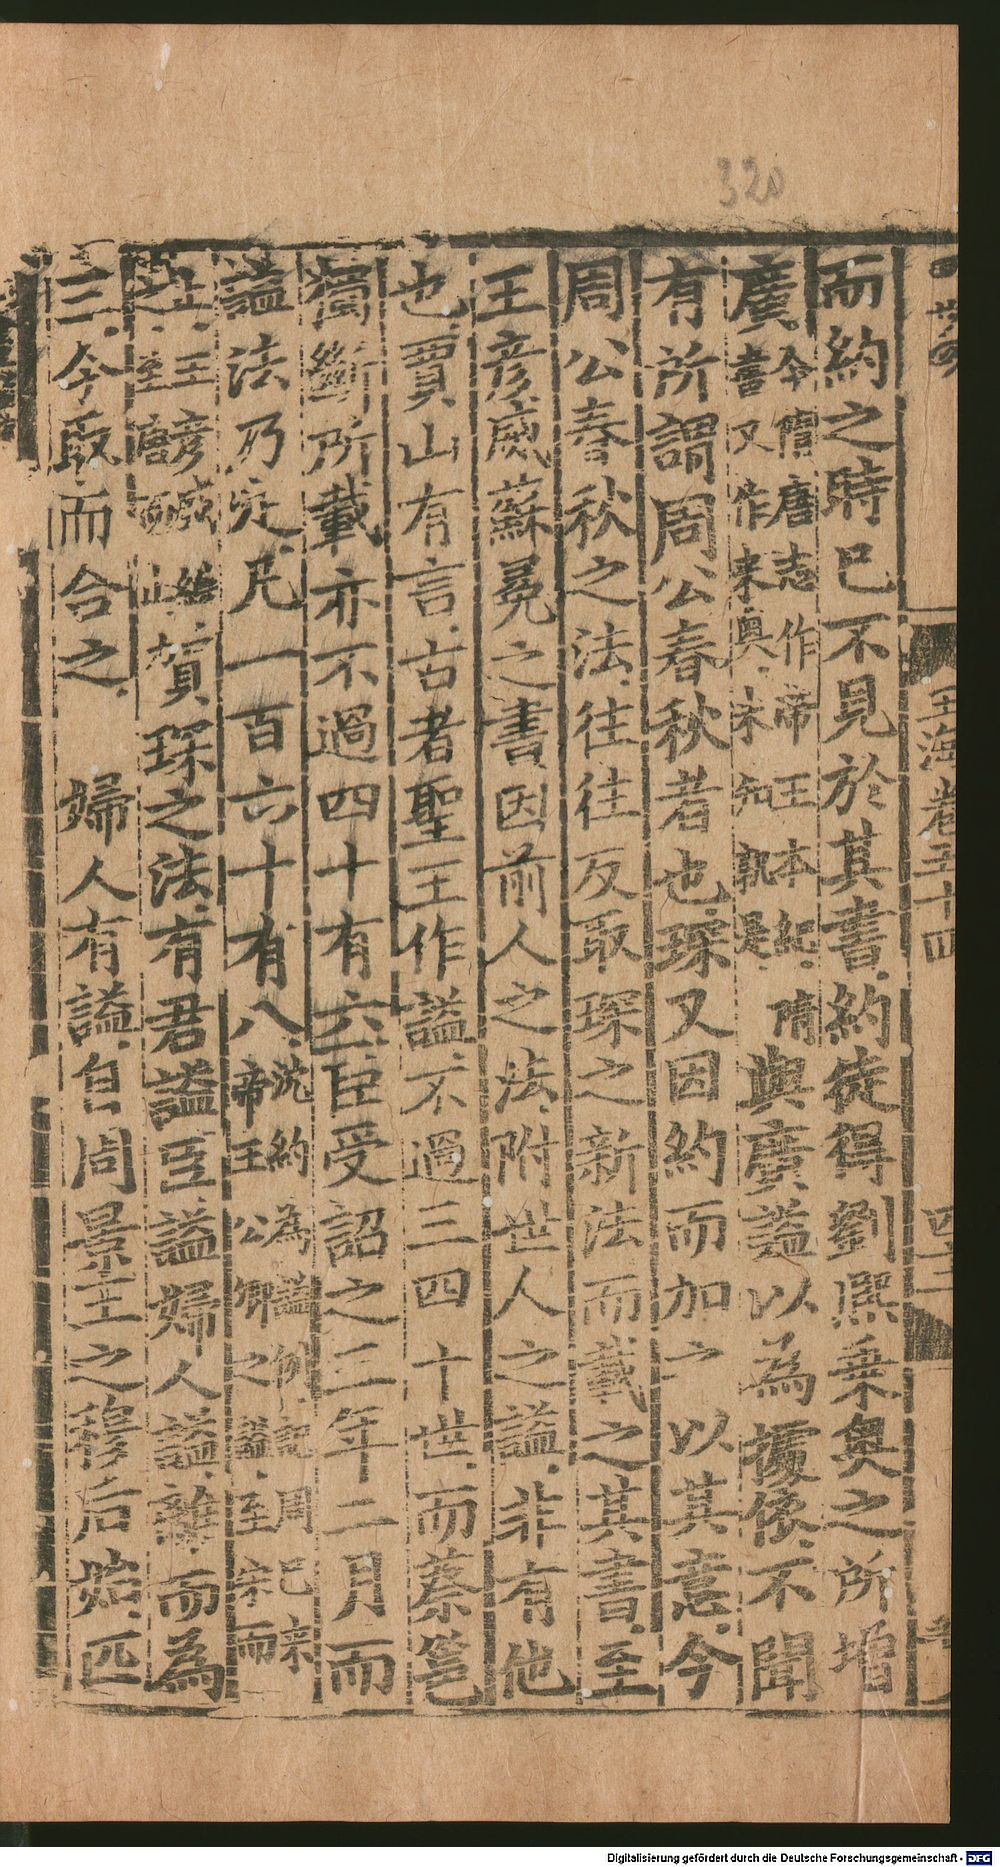 320
玉海卷五十四
而約之時已不見於其書約徒得劉熙乗奥之所増
廣今閲唐志作帝王本紀隋喜又作来奥未知孰是與廣謚以為據依不聞
有所謂周公春秋者也琛又因約而加之以其意今
周公春秋之法往往反取琛之新法而載之其書至
王彦威蘇冕之書因前人之法附世人之謚非有他
也賈山有言古者聖王作謚不過三四十世而蔡邕
獨斷所載亦不過四十有六臣受詔之三年二月而
謚法乃定凡一百六十有八沈約為謚例記周已来帝王公卿之謚至宋而
止王彦威之至唐賀琛之法有君謚臣謚婦人謚離而為
三今取而合之 婦人有謚自周景王之穆后始匹
Digitalisierung gefördert durch die Deutsche Forschungsgemeinschaft - DFG